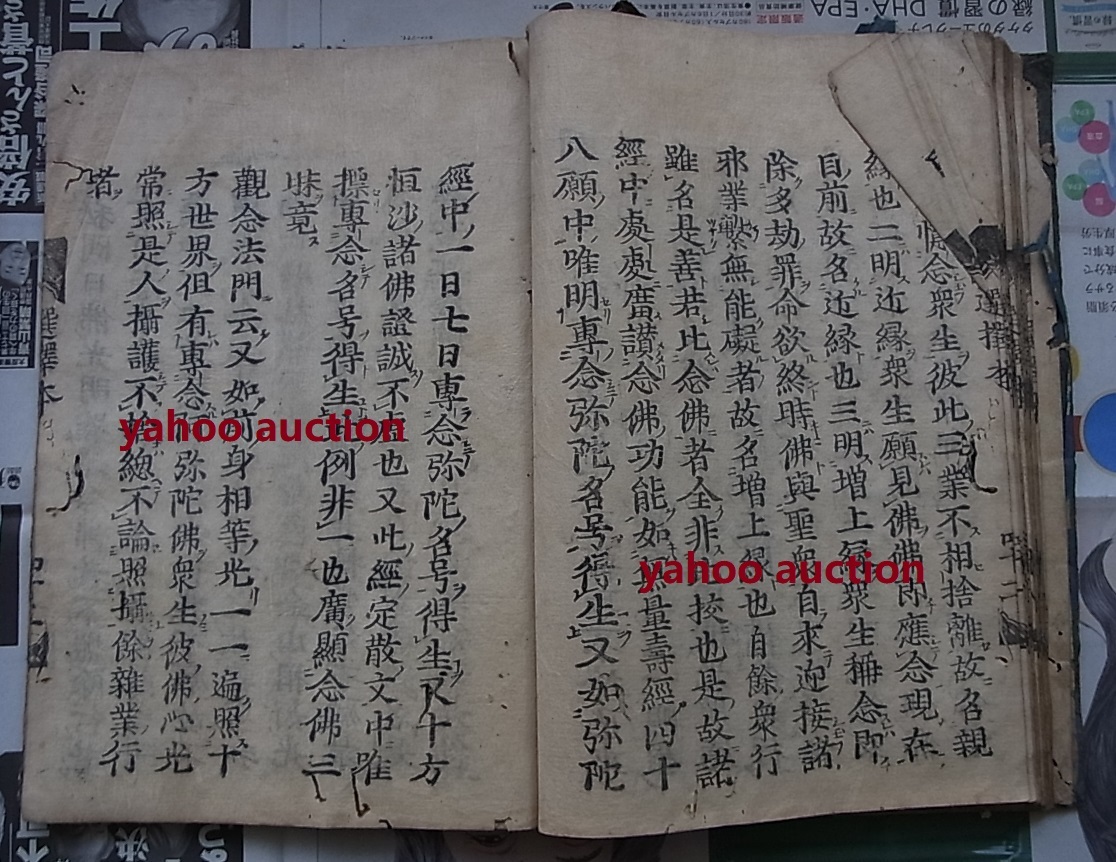 憶念衆生彼此三業不相捨離故名親
縁也二明近縁衆生願見佛佛即應念現在
目前故名近縁也三明増上縁衆生稱念即
除多劫罪命欲終時佛與聖衆自来迎接諸
邪業繫無能礙者故名増上縁也自餘衆行
雖名是善若比念佛者全非比挍也是故諸
經中處處廣讃念佛功能如無量壽經四十
八願中唯明專念弥陀名号得生又如弥陀
經中一日七日專念弥陀名号得生又十方
恒沙諸佛證誠不虚也又此經定散文中唯
摽專念名号得生此例非一也廣顯念佛三
昧竟
觀念法門云又如前身相等光一一遍照十
方世界但有專念阿弥陀佛衆生彼佛心光
常照是人攝護不捨總不論照攝餘雜業行
者
選擇本
yahoo auction
yahoo auction
DHA・EPA